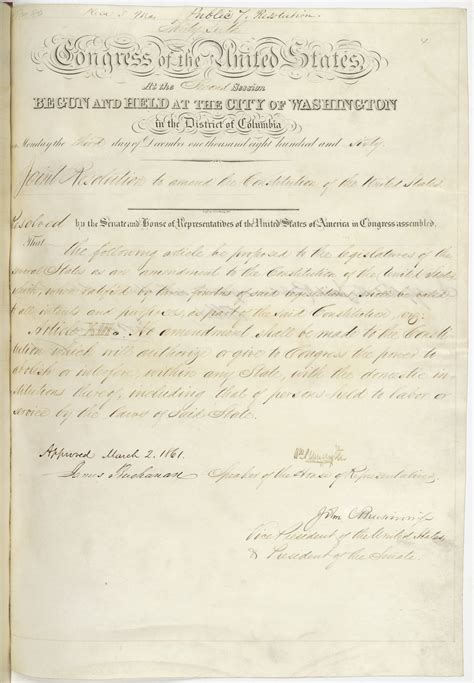 Public 7. Resolution.
Thirty Sixth
Congress of the United States,
At the Second Session
BEGUN AND HELD AT THE CITY OF WASHINGTON
in the District of Columbia
on Monday the third day of December one thousand eight hundred and sixty
Joint Resolution to amend the Constitution of the United States.
Resolved by the Senate and House of Representatives of the United States of America in Congress assembled,
That the following article be proposed to the legislatures of the
several States as an amendment to the Constitution of the United States
which, when ratified by three fourths of said legislatures, shall be valid
to all intents and purposes, as part of the said Constitution, viz:
Article XIII. No amendment shall be made to the Consti-
tution which will authorize or give to Congress the power to
abolish or interfere, within any State, with the domestic in-
stitutions thereof, including that of persons held to labor or
service by the laws of said State.
Approved March 2. 1861.
James Buchanan
Speaker of the House of Representatives
John C Breckinridge
Vice President of the United States
& President of the Senate.